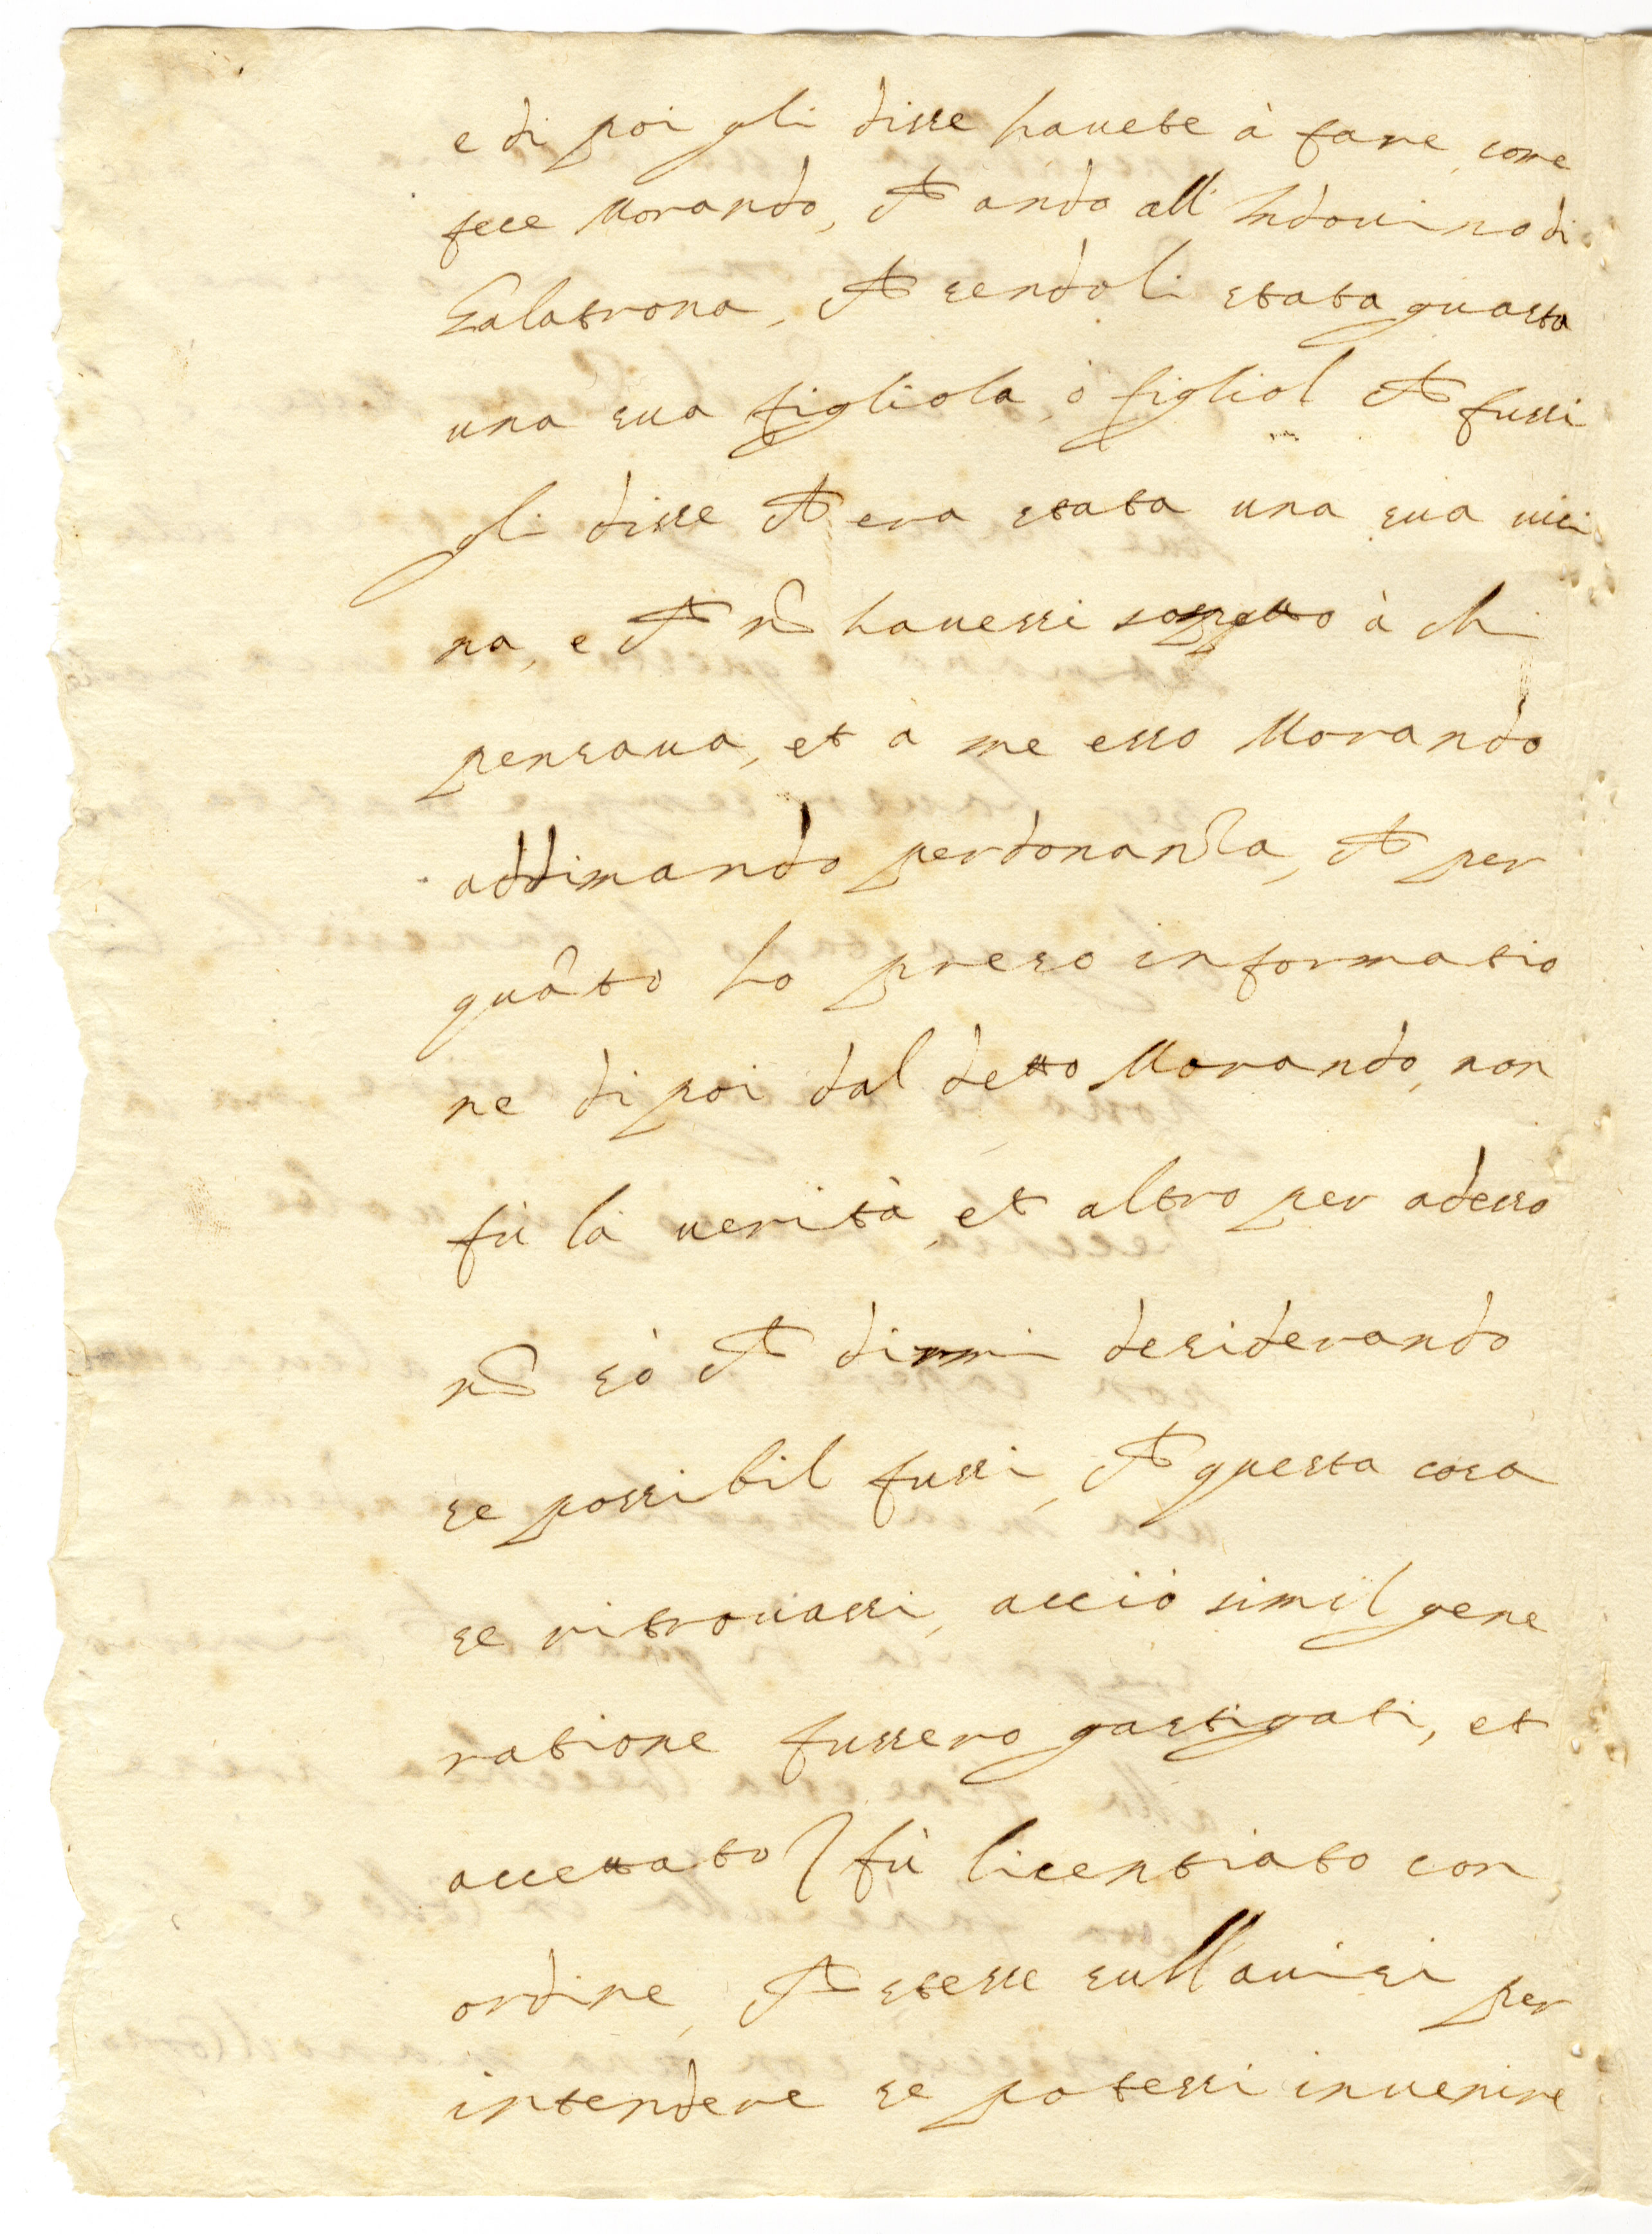 e di poi gli disse havete à fare come
fece Morando, che andò all' Indovino di
Galatrona, che sendoli stata guasta
una sua figliola, ò figliol che fussi
gli disse che era stata una sua vici
na, e che nõ havessi sospetto à chi
pensava, et à me esso Morando
addimandò perdonanza, che per
quãto ho preso informatio
ne di poi dal detto Morando, non
fù la verità, et altro per adesso
nõ sò che dirmi desiderando
se possibil fussi, che questa cosa
se ritrovassi, acciò simil gene
ratione fussero gastigati, et
accettato fù licentiato con
ordine, che stesse sull'avisi per
intendere se potessi invenire